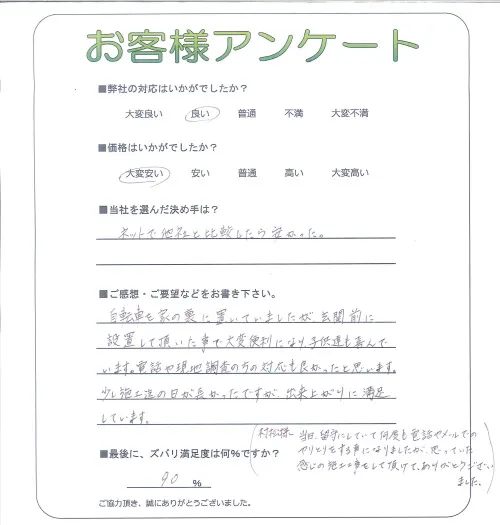 お客様アンケート
■弊社の対応はいかがでしたか？
大変良い 良い 普通 不満 大変不満
■価格はいかがでしたか？
大変安い 安い 普通 高い 大変高い
■当社を選んだ決め手は？
ネットで他社と比較したら安かった。
■ご感想・ご要望などをお書き下さい。
自転車を家の裏に置いていましたが、玄関前に
設置して頂いた事で大変便利になり子供達も喜んで
います。電話や現地調査の方の対応も良かったと思います。
少し施工迄の日が長かったですが、出来上がりに満足
しています。
村松様へ 当日、留守にしていて何度も電話やメールでの
やりとりをする事になりましたが、思っていた
感じの施工事をして頂けて、ありがとうござい
ました。
■最後に、ズバリ満足度は何%ですか？
90 %
ご協力頂き、誠にありがとうございました。